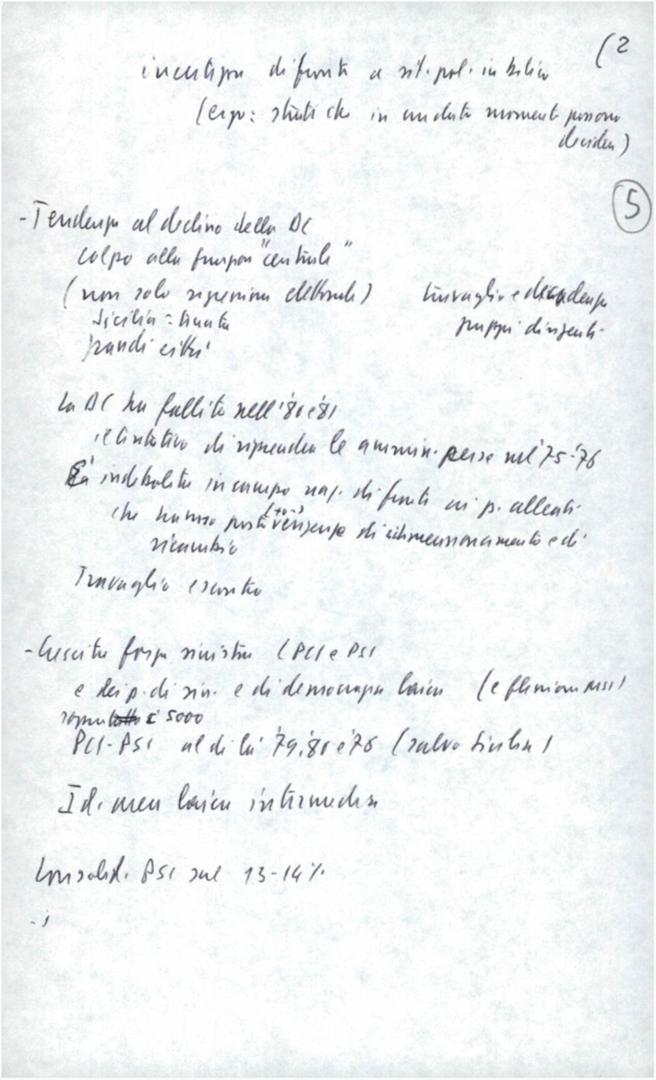 (2
incertezza di fronte a sit. pol. in bilico
(ergo: strati che in un dato momento possono
decidere)
5
- Tendenza al declino della DC
colpo alla funzione "centrale"
(non solo espressione elettorale) travaglio e decadenza
Sicilia = tenuta gruppi dirigenti
grandi città
La DC ha fallito nell'80 e 81
il tentativo di riprendere le ammin. perse nel '75-'76
È indebolita in campo naz. di fronte ai p. alleati
che hanno posto l'esigenza di ridimensionamento e di
ricambio
Travaglio e scontro
- Crescita forze sinistra (PCI e PSI
e dei p. di sin. e di democrazia laica (e flessione MSI)
sopratt. < 5000
PCI-PSI al di là '79, '80 e '76 (salvo Sicilia)
Id. area laica intermedia
Consolid. PSI sul 13-14%